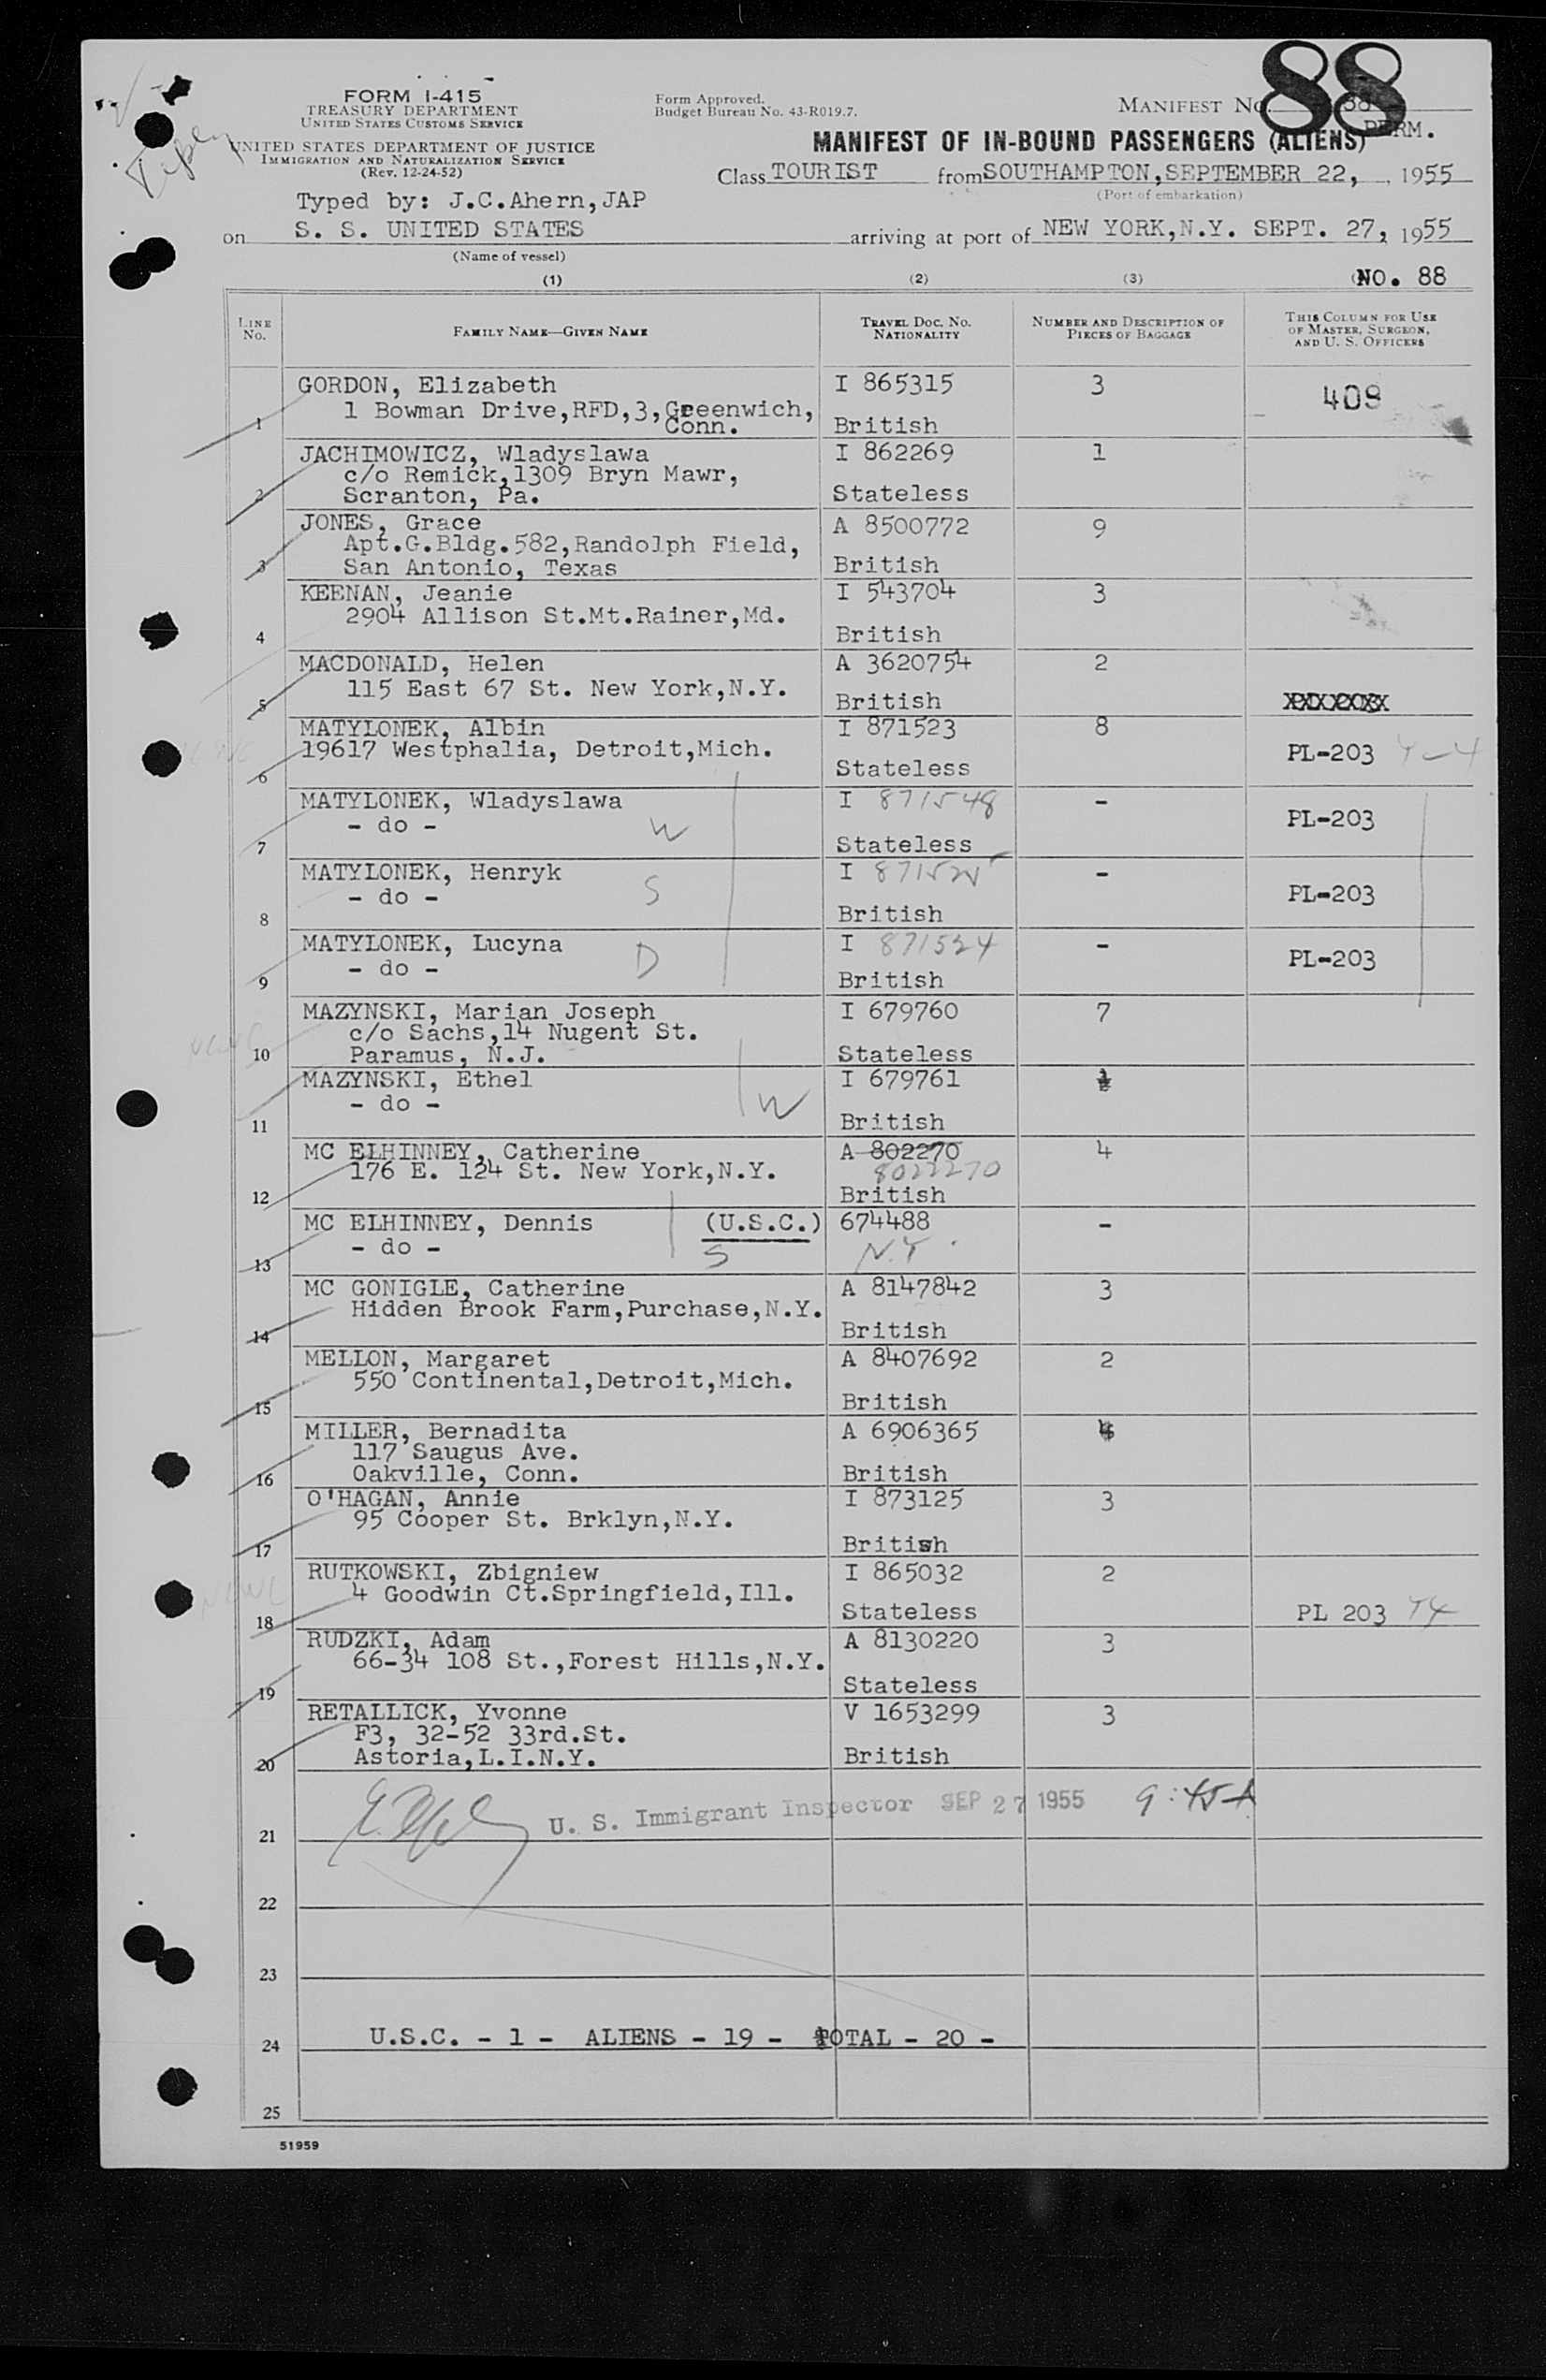 88
FORM I-415
TREASURY DEPARTMENT
UNITED STATES CUSTOMS SERVICE
UNITED STATES DEPARTMENT OF JUSTICE
IMMIGRATION AND NATURALIZATION SERVICE
(Rev. 12-24-52)
Form Approved.
Budget Bureau No. 43-R019.7.
MANIFEST No. 88
PERM.
MANIFEST OF IN-BOUND PASSENGERS (ALIENS)
Class TOURIST from SOUTHAMPTON, SEPTEMBER 22, , 1955
(Port of embarkation)
Typed by: J.C.Ahern,JAP
on S. S. UNITED STATES arriving at port of NEW YORK,N.Y. SEPT. 27, 1955
(Name of vessel)
(1) (2) (3) NO. 88
LINE No. FAMILY NAME—GIVEN NAME TRAVEL DOC. NO. NATIONALITY NUMBER AND DESCRIPTION OF PIECES OF BAGGAGE THIS COLUMN FOR USE OF MASTER, SURGEON, AND U. S. OFFICERS
GORDON, Elizabeth I 865315 3 409
1 Bowman Drive,RFD,3,Greenwich,
1 Conn. British
JACHIMOWICZ, Wladyslawa I 862269 1
c/o Remick,1309 Bryn Mawr,
2 Scranton, Pa. Stateless
JONES, Grace A 8500772 9
Apt.G.Bldg.582,Randolph Field,
3 San Antonio, Texas British
KEENAN, Jeanie I 543704 3
2904 Allison St.Mt.Rainer,Md.
4 British
MACDONALD, Helen A 3620754 2
115 East 67 St. New York,N.Y.
5 British XXXXXXXX
MATYLONEK, Albin I 871523 8
19617 Westphalia, Detroit,Mich. PL-203 Y-4
6 Stateless
MATYLONEK, Wladyslawa I 871548 -
- do - W PL-203
7 Stateless
MATYLONEK, Henryk I 871525 -
- do - S PL-203
8 British
MATYLONEK, Lucyna I 871524 -
- do - D PL-203
9 British
MAZYNSKI, Marian Joseph I 679760 7
c/o Sachs,14 Nugent St.
10 Paramus, N.J. Stateless
MAZYNSKI, Ethel I 679761
- do - W
11 British
MC ELHINNEY, Catherine A 802270 4
176 E. 124 St. New York,N.Y. 8022270
12 British
MC ELHINNEY, Dennis (U.S.C.) 674488 -
- do - S N.Y.
13
MC GONIGLE, Catherine A 8147842 3
Hidden Brook Farm,Purchase,N.Y.
14 British
MELLON, Margaret A 8407692 2
550 Continental,Detroit,Mich.
15 British
MILLER, Bernadita A 6906365
117 Saugus Ave.
16 Oakville, Conn. British
O'HAGAN, Annie I 873125 3
95 Cooper St. Brklyn,N.Y.
17 British
RUTKOWSKI, Zbigniew I 865032 2
4 Goodwin Ct.Springfield,Ill.
18 Stateless PL 203 Y4
RUDZKI, Adam A 8130220 3
66-34 108 St.,Forest Hills,N.Y.
19 Stateless
RETALLICK, Yvonne V 1653299 3
F3, 32-52 33rd.St.
20 Astoria,L.I.N.Y. British
U. S. Immigrant Inspector SEP 27 1955 9:45A
21
22
23
24 U.S.C. - 1 - ALIENS - 19 - TOTAL - 20 -
25
51959